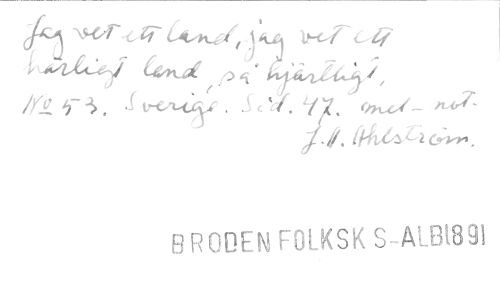 Jag vet ett land, jag vet ett
härligt land, så hjärtligt,
No 53. Sverige. Sid. 47. mel-not.
J.A. Ahlström.
BRODEN FOLKSK S-ALB1891